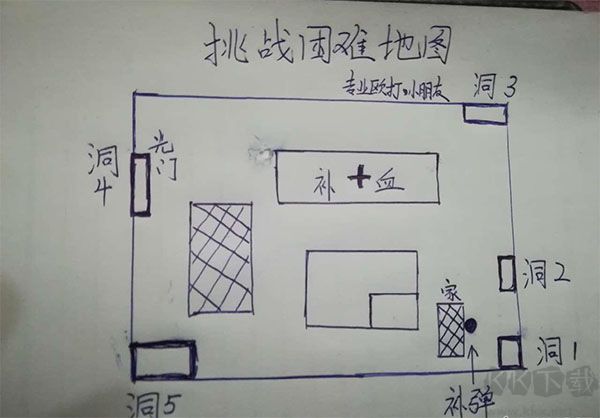 挑战困难地图
专业欧打小朋友
洞3
光门
洞4
补+血
洞2
家
洞1
补弹
洞5
KK下载